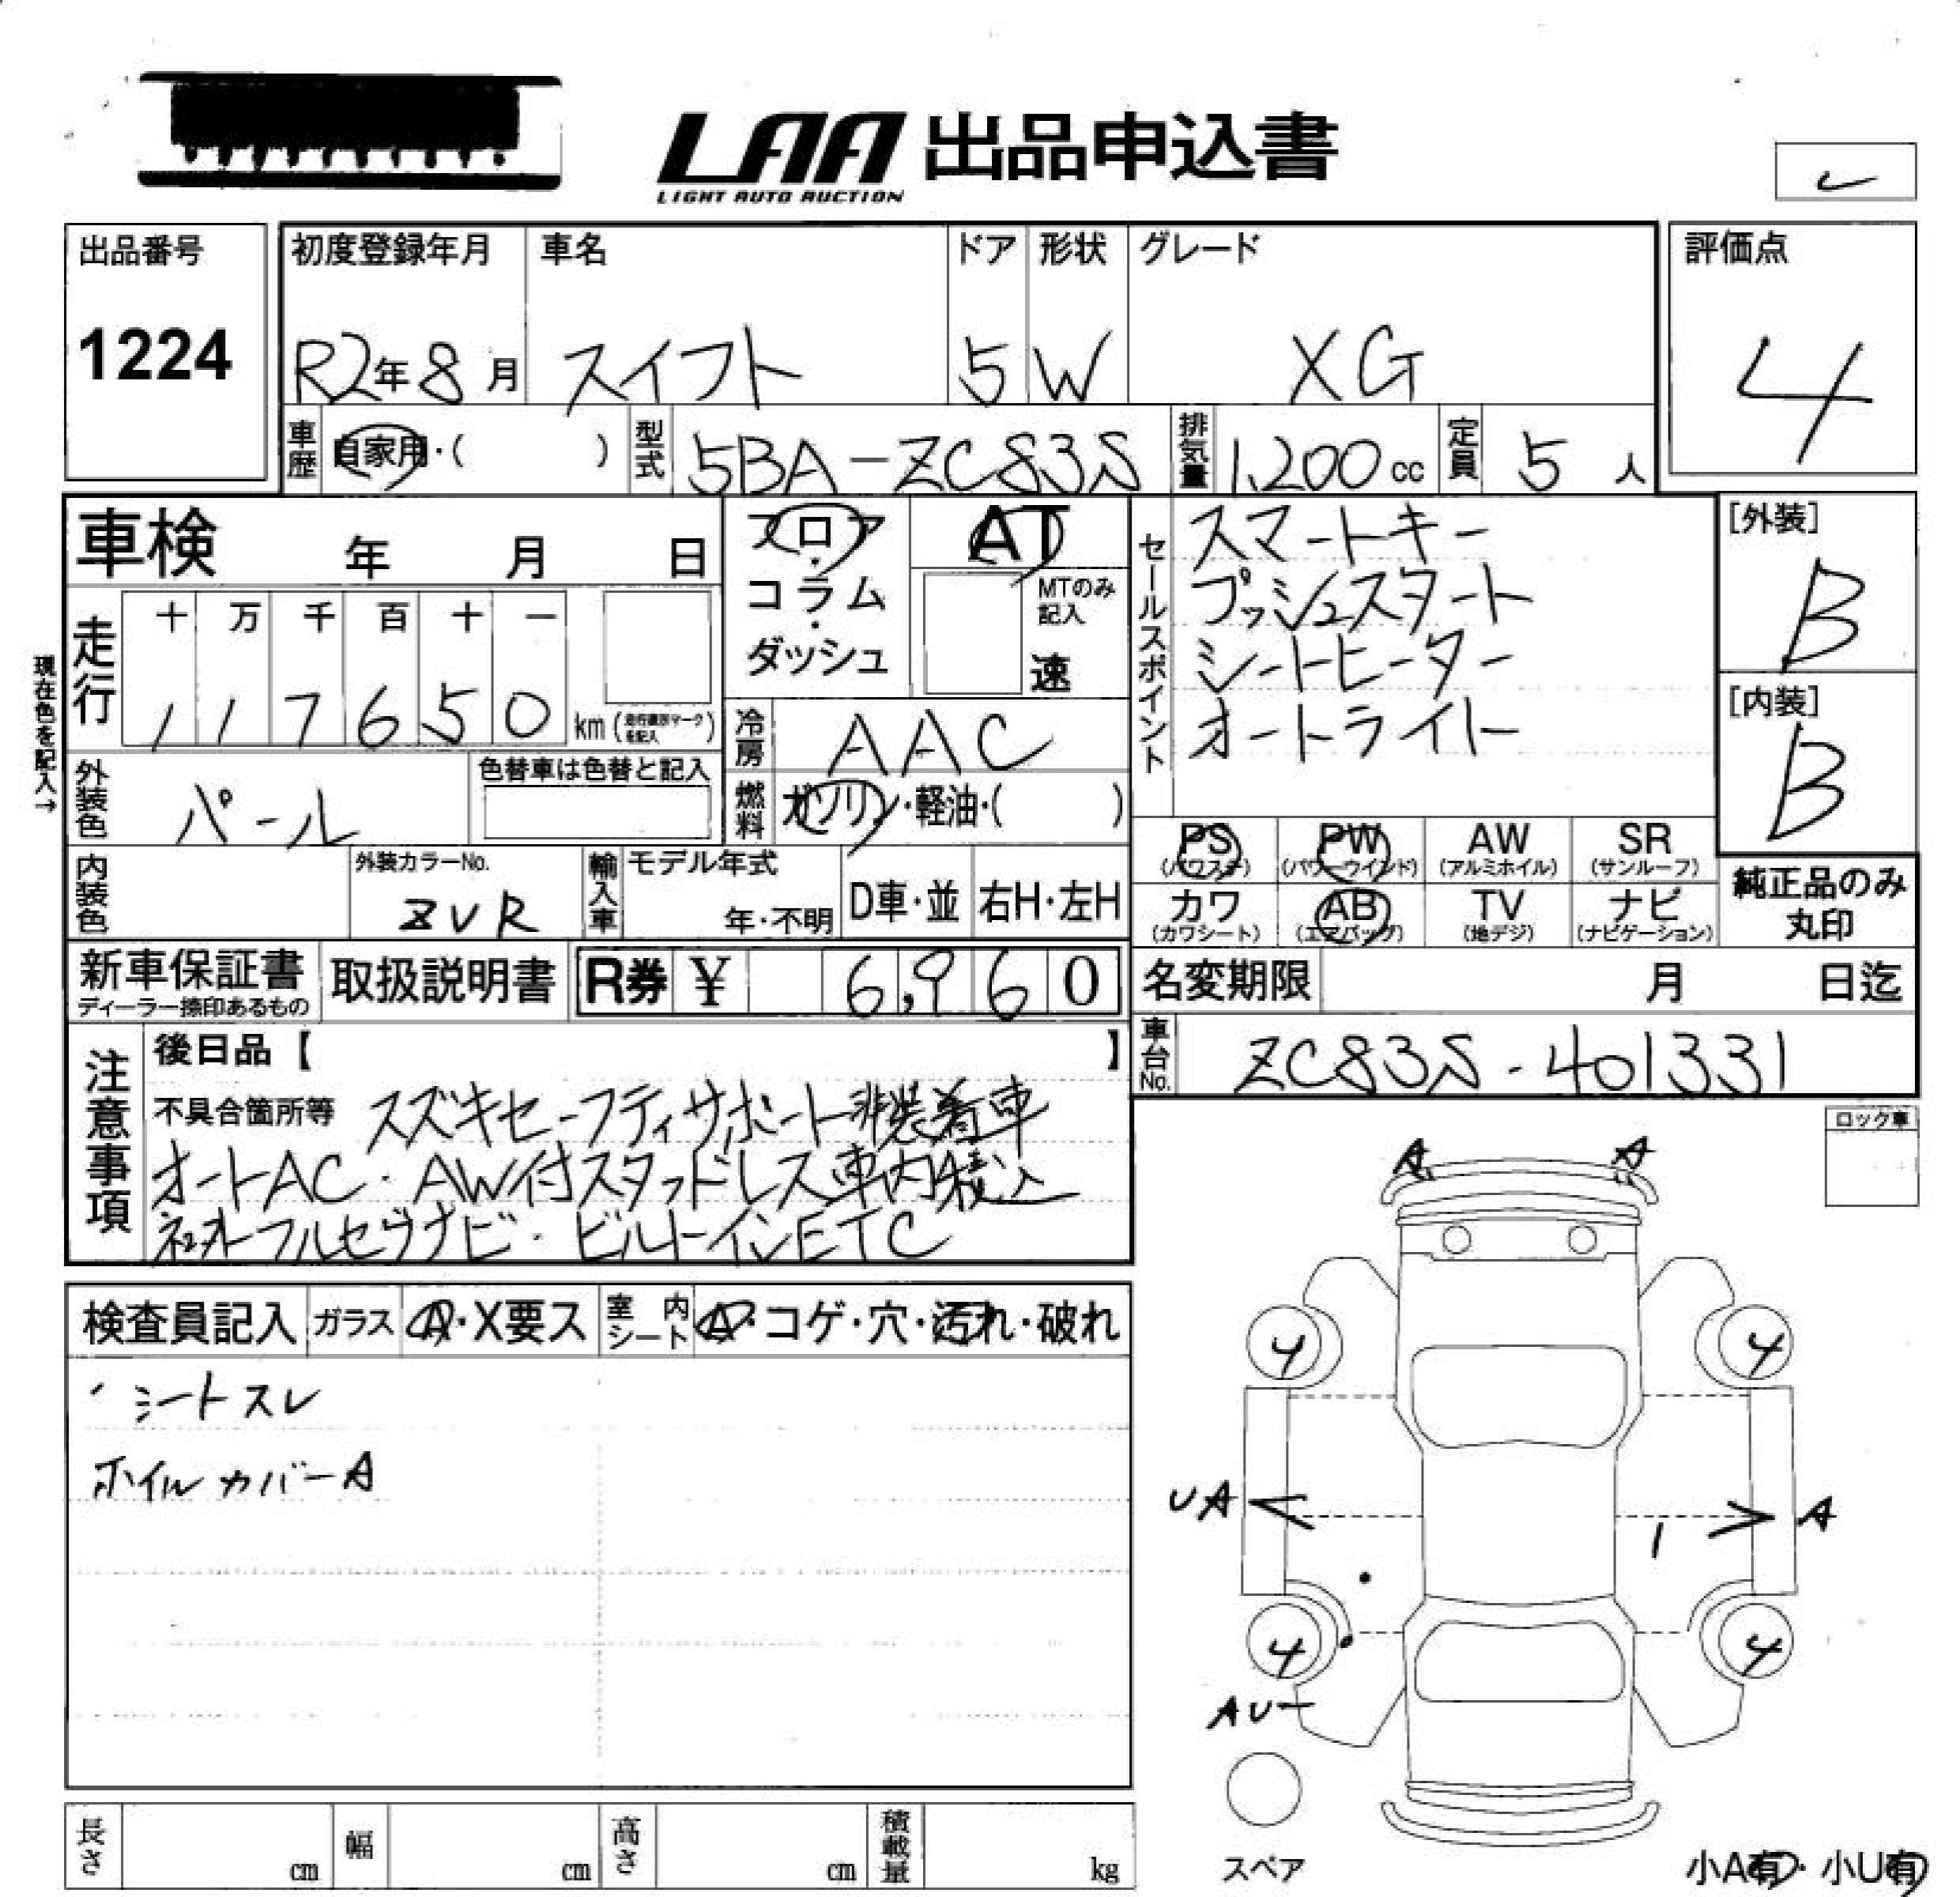 LAA 出品申込書
LIGHT AUTO AUCTION
出品番号
1224
初度登録年月
R2年8月
車名
スイフト
ドア
5
形状
W
グレード
XG
評価点
4
車歴
自家用・( )
型式
5BA-ZC83S
排気量
1,200cc
定員
5人
車検 年 月 日
フロア・コラム・ダッシュ
AT
MTのみ記入
速
セールスポイント
スマートキー
プッシュスタート
シートヒーター
オートライト
[外装]
B
[内装]
B
現在色を記入→
走行
十 万 千 百 十 一
1 1 7 6 5 0 km (走行確認マークを記入)
冷房
AAC
外装色
パール
色替車は色替と記入
燃料
ガソリン・軽油・( )
PS (パワステ)
PW (パワーウインド)
AW (アルミホイル)
SR (サンルーフ)
カワ (カワシート)
AB (エアバッグ)
TV (地デジ)
ナビ (ナビゲーション)
純正品のみ丸印
内装色
外装カラーNo.
ZVR
輸入車
モデル年式
年・不明
D車・並
右H・左H
新車保証書
ディーラー捺印あるもの
取扱説明書
R券 ¥ 6,960
名変期限 月 日迄
車台No.
ZC83S-401331
注意事項
後日品【 】
不具合箇所等 スズキセーフティサポート非装着車
オートAC・AW付スタッドレス車内積込
フルセグナビ・ビルトインETC
ロック車
A A
検査員記入
ガラス
A・X要ス
室内シート
A・コゲ・穴・汚れ・破れ
・シートスレ
ホイルカバーA
4 4
UA A
4 4
AU
スペア
小A有・小U有
長さ cm
幅 cm
高さ cm
積載量 kg